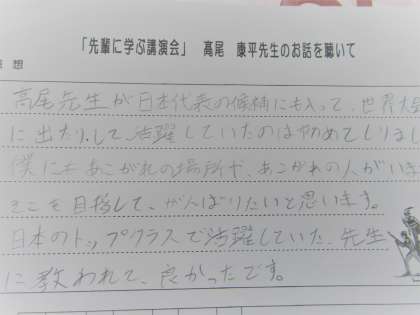 「先輩に学ぶ講演会」 髙尾 康平先生のお話を聴いて
想
高尾先生が日本代表の候補にも入って、世界大
に出たりして、活躍していたのは初めてしりまし
僕にもあこがれの場所や、あこがれの人がいま
そこを目指して、がんばりたいと思います。
日本のトップクラスで活躍していた、先生
に教われて、良かったです。